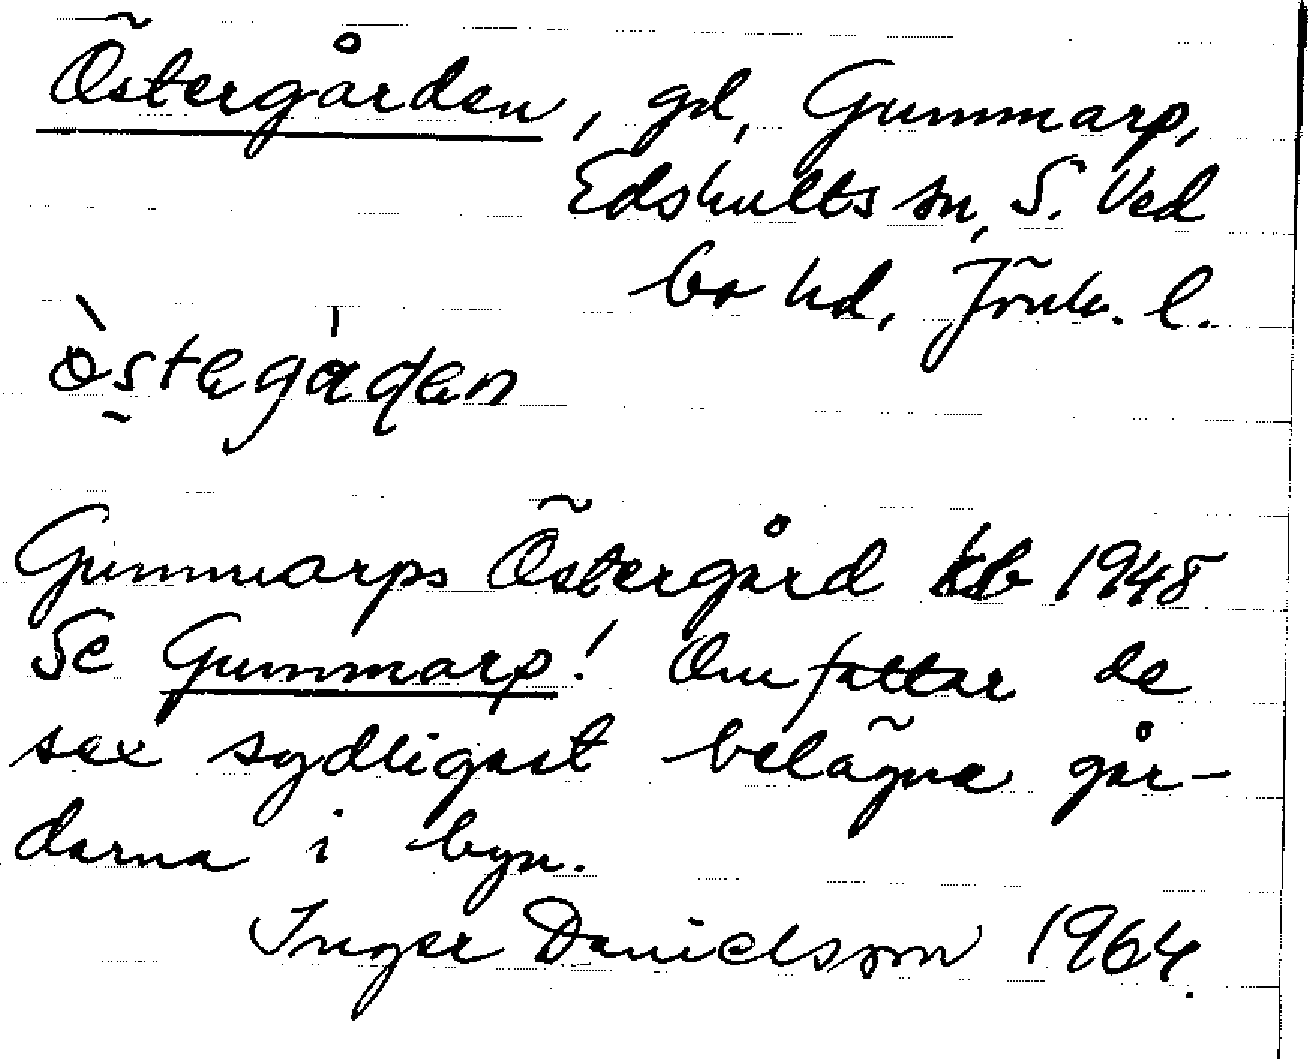 Östergården, gd, Gummarp,
Edshults sn, S. Ved
bo hd, Jönk. l.
östegån
Gummarps Östergård kb 1948
Se Gummarp! Omfattar de
sex sydligast belägna går-
darna i byn.
Inger Danielsson 1964.